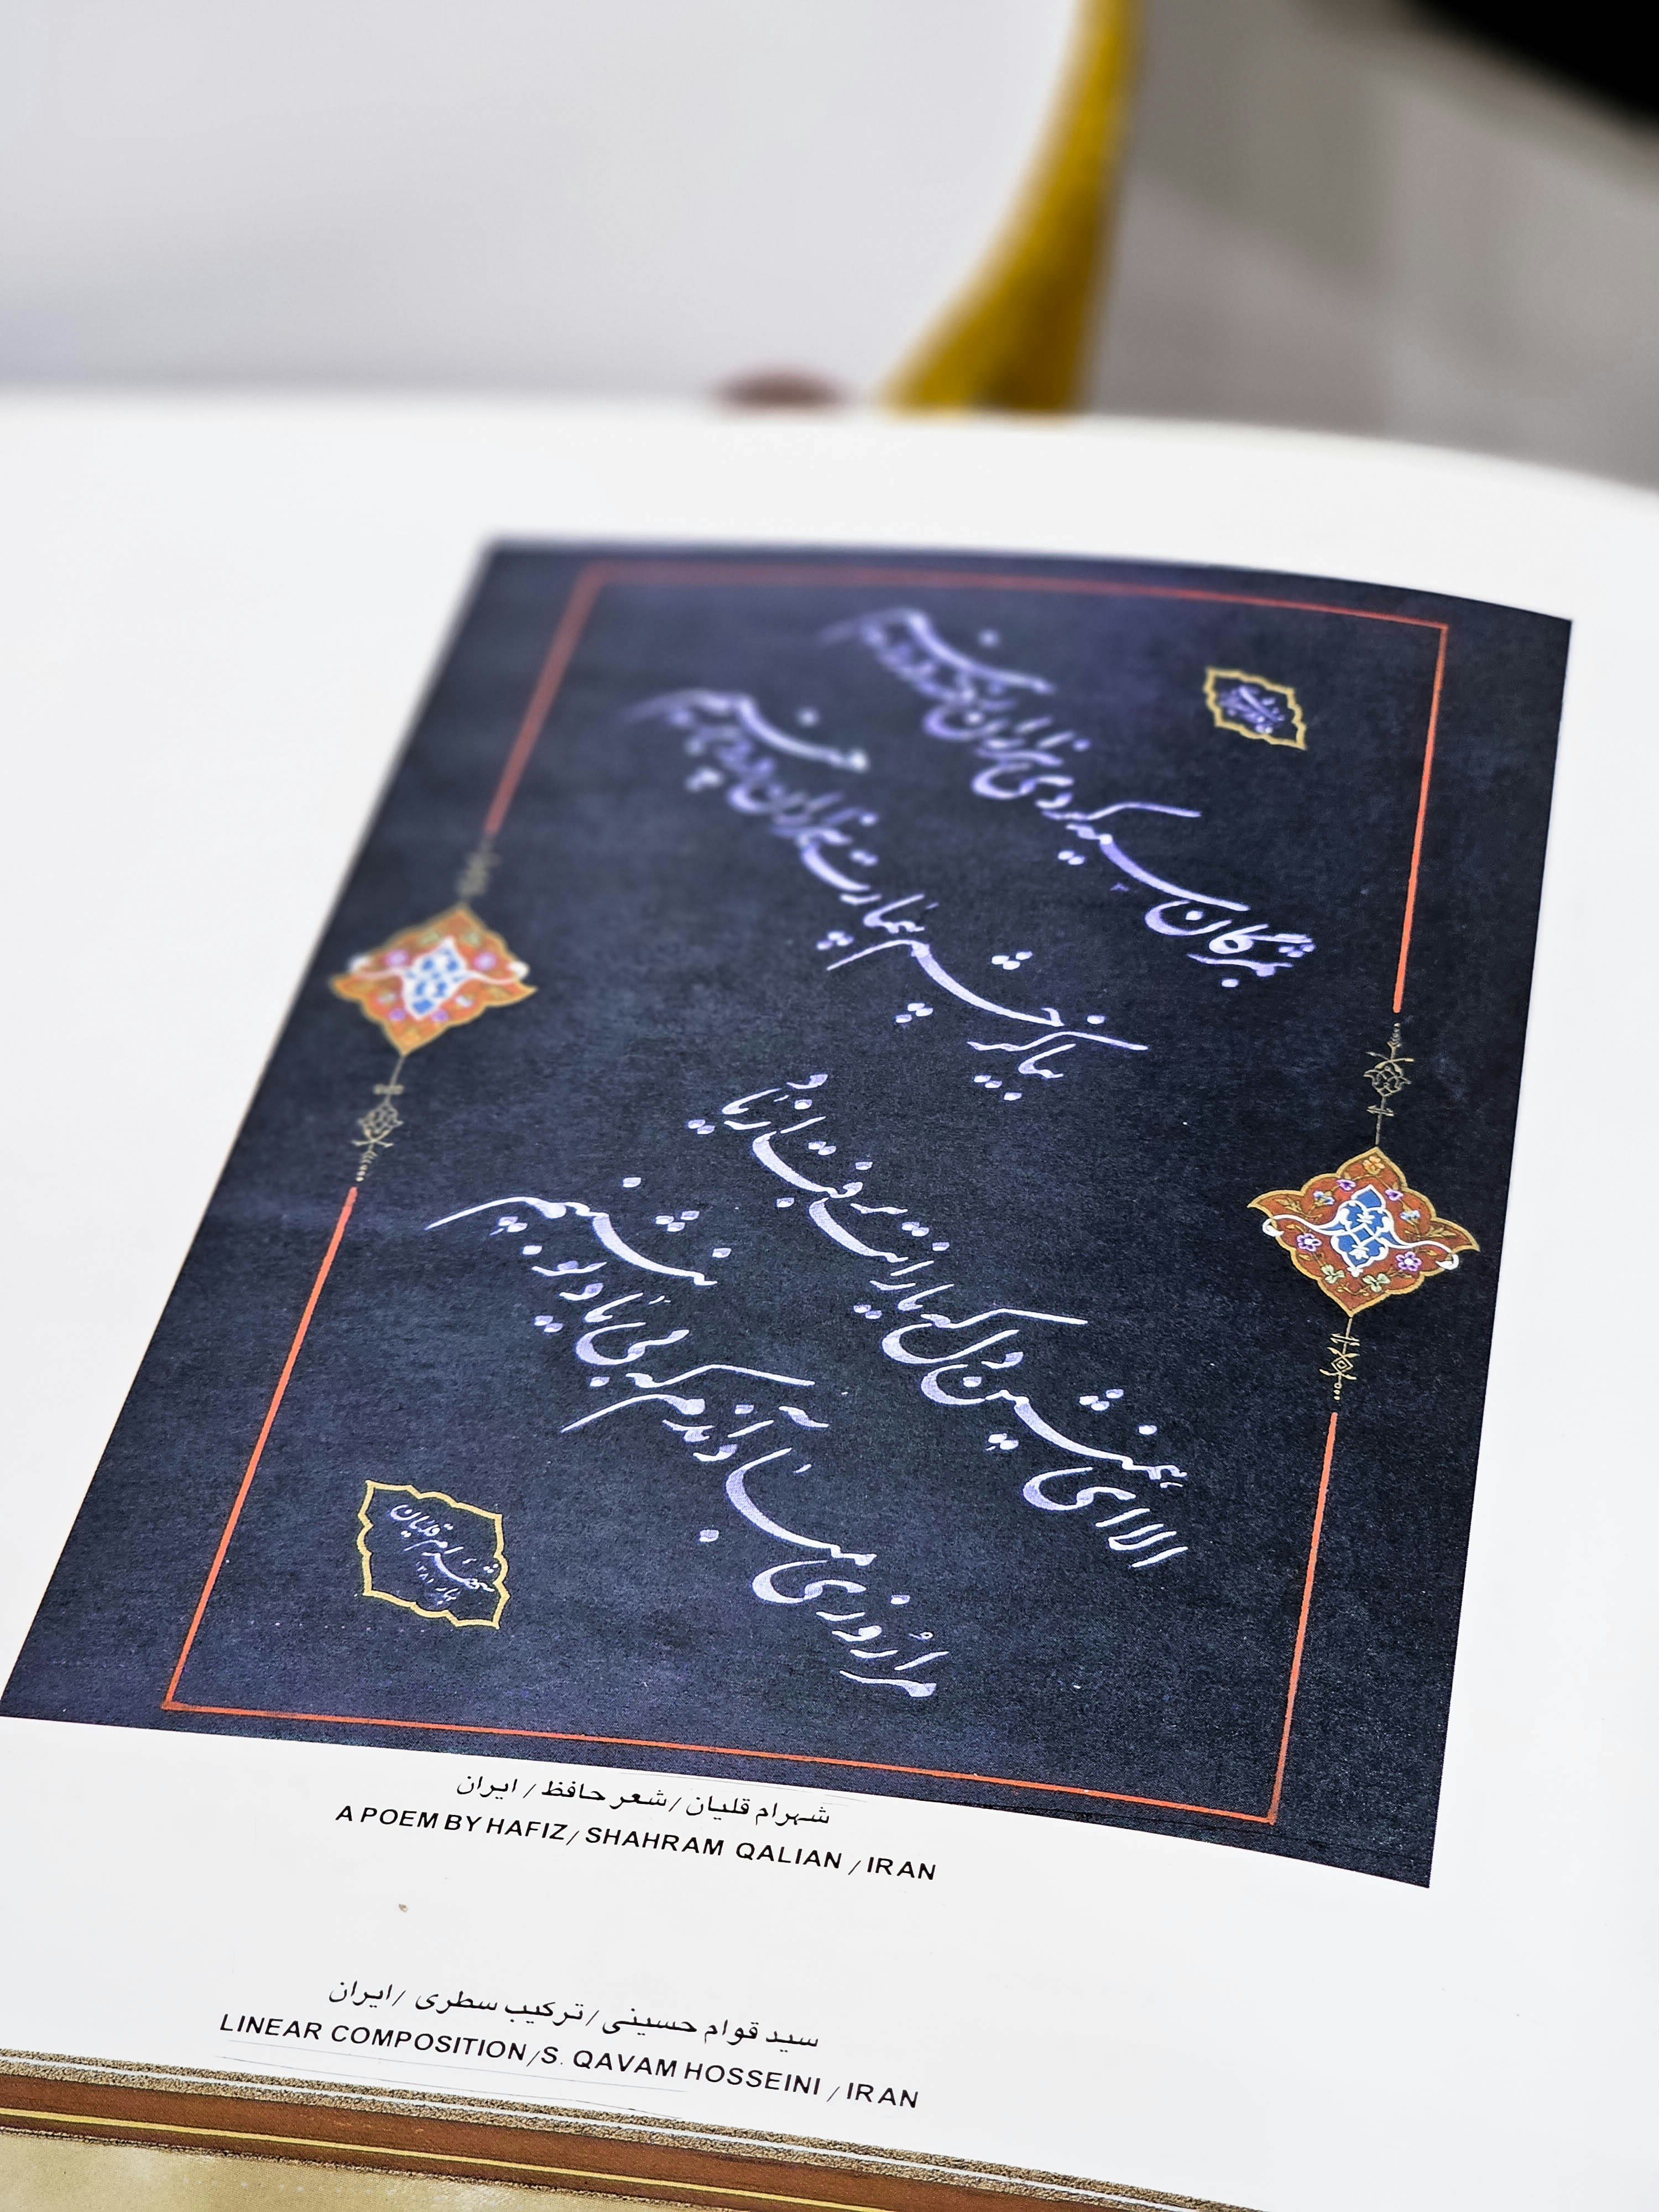 بمژگان سیه کردی هزاران رخنه در دینم
بیا کز چشم بیمارت هزاران درد برچینم
الا ای همنشین دل که یارانت برفت از یاد
مرا روزی مباد آندم که بی یاد تو بنشینم
شهرام قلیان
بهار
شهرام قلیان / شعر حافظ / ایران
A POEM BY HAFIZ / SHAHRAM QALIAN / IRAN
سید قوام حسینی / ترکیب سطری / ایران
LINEAR COMPOSITION / S. QAVAM HOSSEINI / IRAN